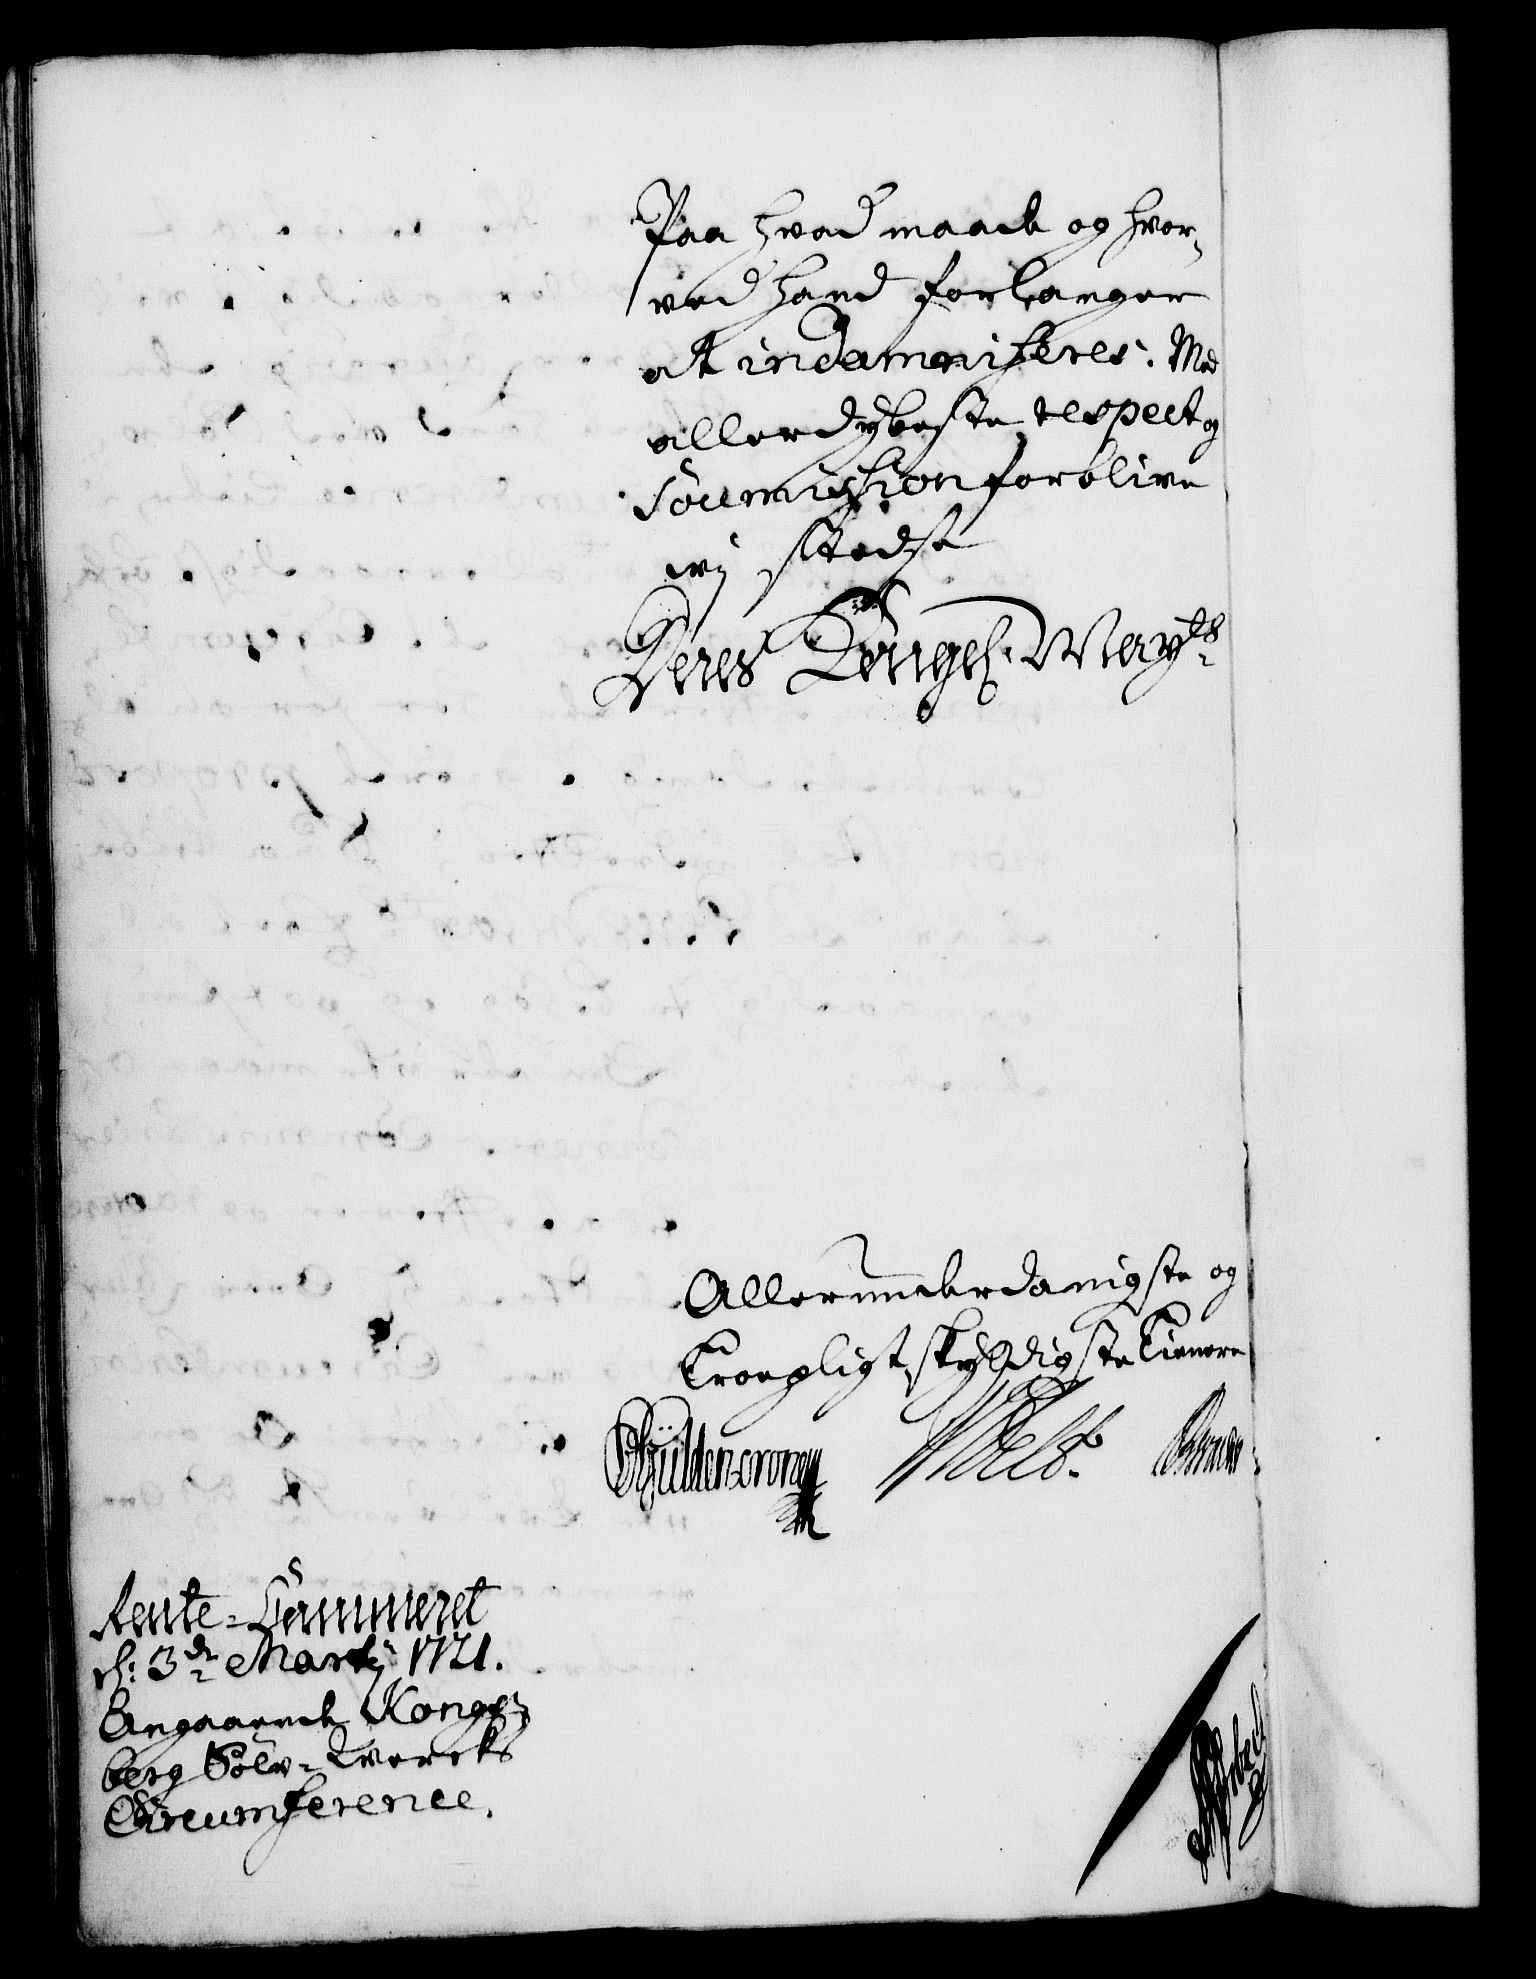 Paa hvad maade og hvor-
ved hand forlanger
at indemniseres. Med
allerdybeste respect og
soumission forblive
vj stedse
Deres Kongel. Mayts
Allerunderdanigste og
Troepligtskyldigste Tienere
Gÿldencrone
Rente-Cammeret
d: 3de Martij 1721.
Angaaende Kongs-
berg Sølv-Wercks
Circumference.